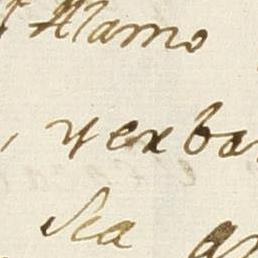 Alamo
, yerba
Sea